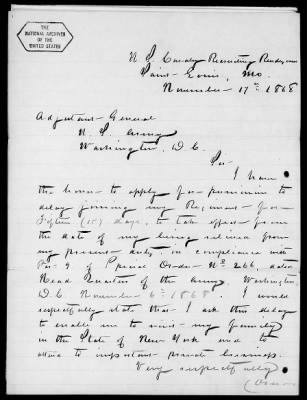 THE
NATIONAL ARCHIVES
OF THE
UNITED STATES
U S Cavalry Recruiting Rendezvous
Saint Louis, Mo.
November 17th 1868
Adjutant General
U. S. Army
Washington, D.C.
Sir
I have
the honor to apply for permission to
delay joining my Regiment for
Fifteen (15) days, to take effect from
the date of my being relieved from
my present duty, in compliance with
Par: 9 of Special Order No 266, dated
Head Quarters of the Army, Washington
D.C. November 6th 1868. I would
respectfully state that I ask this delay
to enable me to my family
in the State of New York and to
attend to important private business.
Very respectfully
(Over)